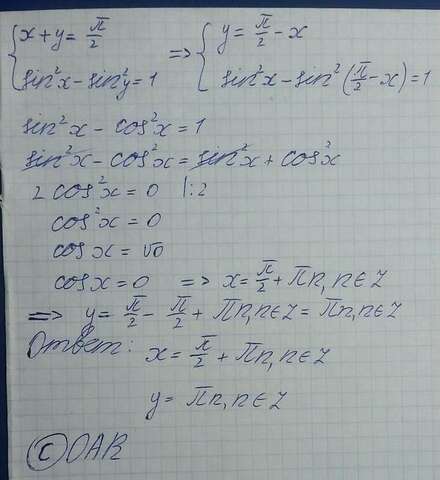 { x + y = π/2 => { y = π/2 - x
{ sin²x - sin²y = 1 { sin²x - sin²(π/2 - x) = 1
sin²x - cos²x = 1
sin²x - cos²x = sin²x + cos²x
2 cos²x = 0 |:2
cos²x = 0
cos x = √0
cos x = 0 => x = π/2 + πn, n∈Z
=> y = π/2 - π/2 + πn, n∈Z = πn, n∈Z
Ответ: x = π/2 + πn, n∈Z
y = πn, n∈Z
© OAR